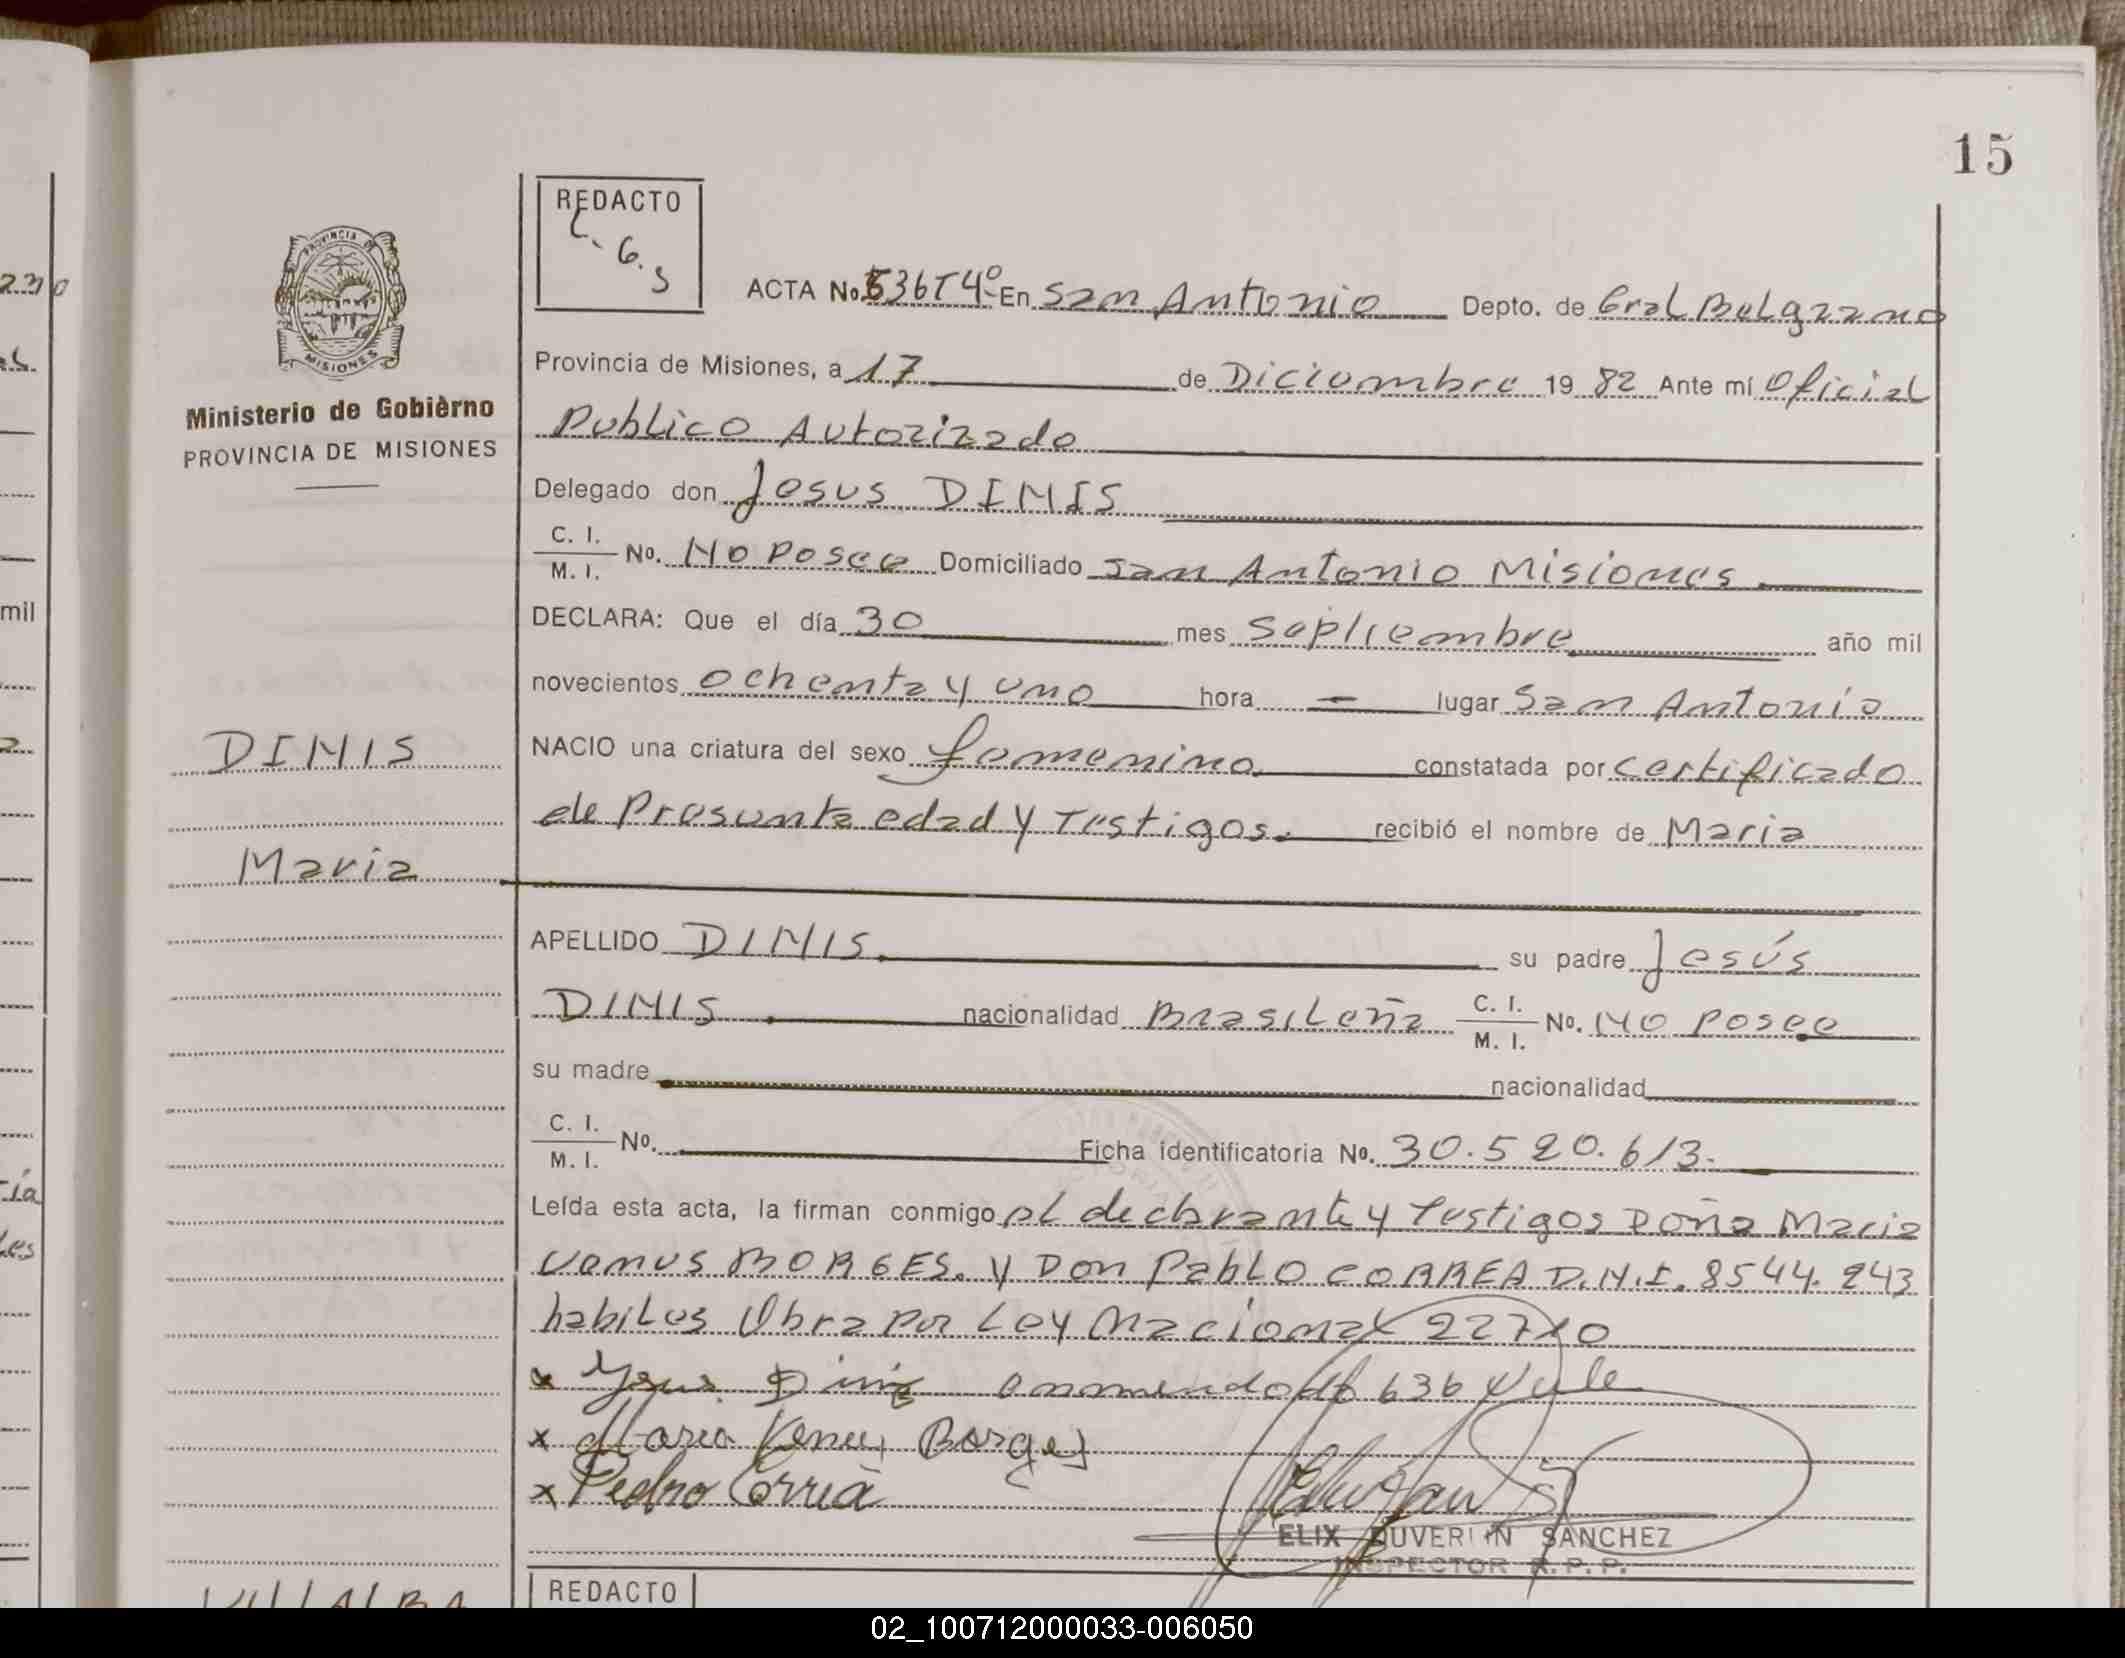 15
REDACTO
L. G. S
ACTA No. 636 T4º En San Antonio Depto. de Gral Belgrano
Provincia de Misiones, a 17 de Diciembre 1982 Ante mí Oficial
Publico Autorizado
Delegado don Jesus DINIS
C. I.
M. I. No. No Posee Domiciliado San Antonio Misiones
DECLARA: Que el día 30 mes Septiembre año mil
novecientos ochenta y uno hora — lugar San Antonio
NACIO una criatura del sexo femenino constatada por certificado
de Presunta edad y Testigos. recibió el nombre de Maria
APELLIDO DINIS. su padre Jesús
DINIS. nacionalidad Brasileña C. I.
M. I. No. No posee
su madre nacionalidad
C. I.
M. I. No. Ficha identificatoria No. 30.520.613.
Leída esta acta, la firman conmigo el declarante y Testigos Doña Maria
Venus BORGES. y Don Pablo CORREA D.N.I. 8544.243
habiles Obra por Ley Nacional 22710
x Jesus Dinis enmendado 636 Vale
x Maria Venus Borges
x Pedro Correa
ELIX DUVERLIN SANCHEZ
INSPECTOR R. P. P.
Ministerio de Gobierno
PROVINCIA DE MISIONES
PROVINCIA DE
MISIONES
DINIS
Maria
VILLALBA
REDACTO
230
mil
ría
les
02_100712000033-006050